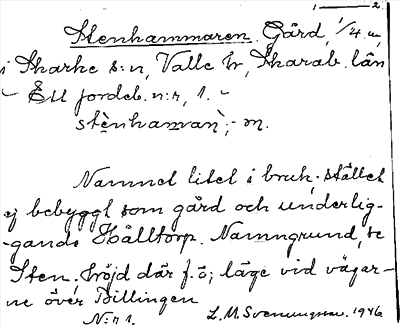 1 — 2.
Stenhammaren. Gård, 1/4 m,
i Skarke s:n, Valle hr, Skarab. län
- Ett jordeb. n:r, 1. -
stènhamran`; m.
Namnet litet i bruk; stället
ej bebyggt som gård och underlig-
-gande Hålltorp. Namngrund, te
Sten, höjd där f. ö; läge vid vägar-
ne över Billingen
N:r 1. L. M. Svenungsson. 1946